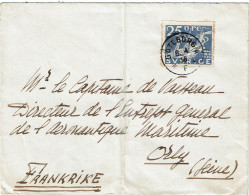 25 25
SVERIGE
Mr. le Capitaine de Vaisseau
Directeur de l'Entrepôt Général
de l'aéronautique Maritime
Orly
(Seine)
FRANKRIKE